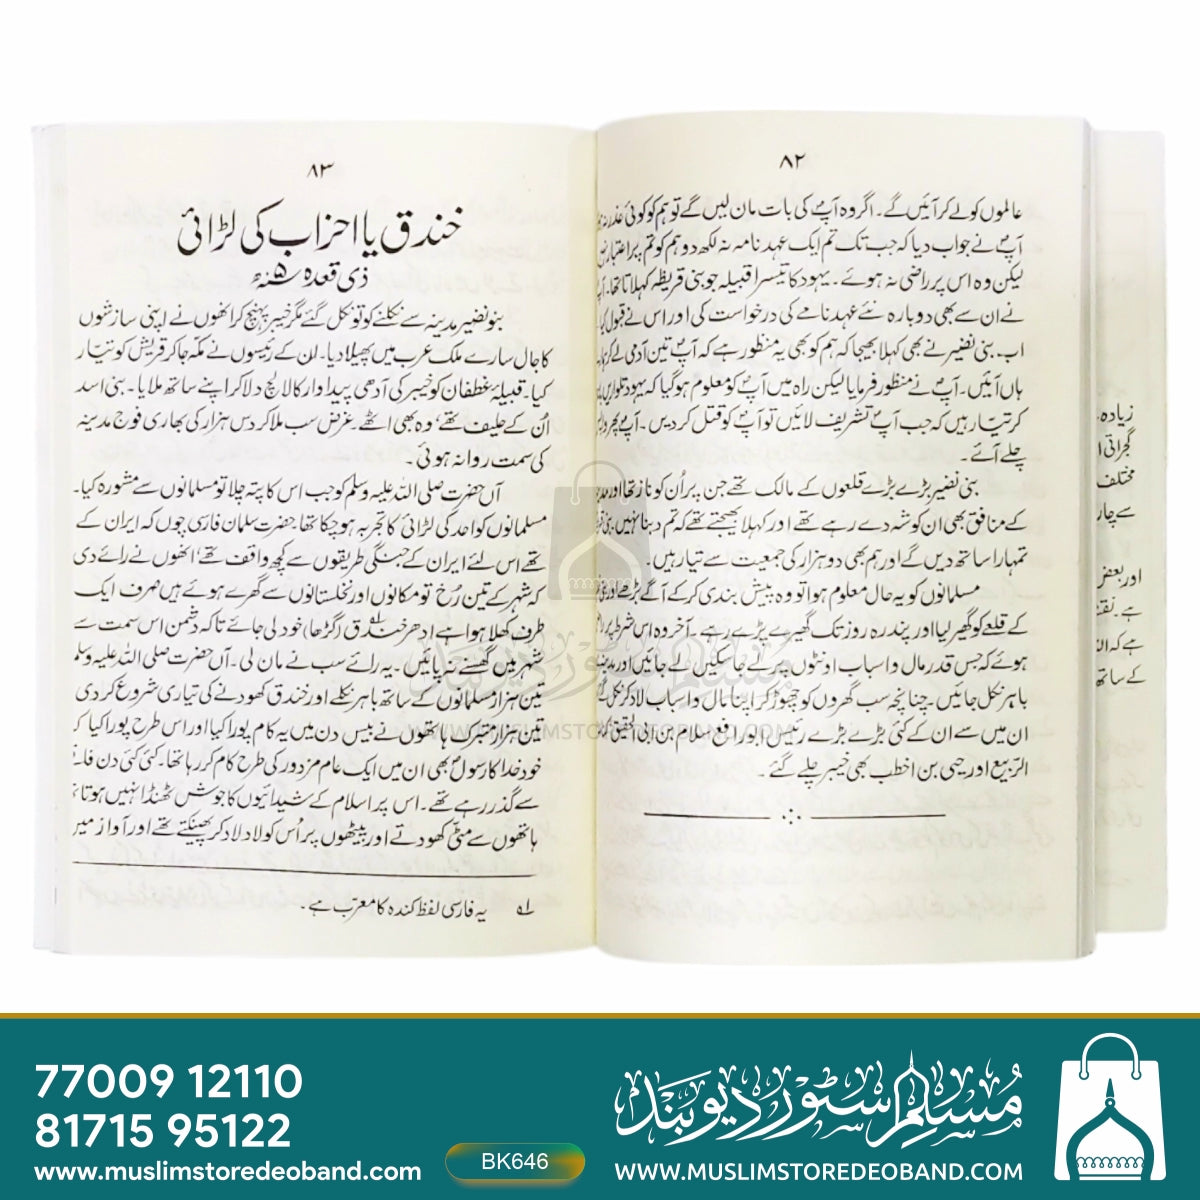 ۸۲
عالموں کو لے کر آئیں گے۔ اگر وہ آپؐ کی بات مان لیں گے تو ہم کو کوئی عذر نہ
آپؐ نے جواب دیا کہ جب تک تم ایک عہد نامہ نہ لکھ دو ہم کو تم پر اعتبار نہیں
لیکن وہ اس پر راضی نہ ہوئے۔ یہود کا تیسرا قبیلہ جو بنی قریظہ کہلاتا تھا۔
نے ان سے بھی دوبارہ نئے عہد نامے کی درخواست کی اور اس نے قبول کیا
اب۔ بنی نضیر نے بھی کہلا بھیجا کہ ہم کو بھی یہ منظور ہے کہ آپؐ تین آدمی لے کر
ہاں آئیں۔ آپؐ نے منظور فرمایا لیکن راہ میں آپؐ کو معلوم ہو گیا کہ یہود تلواریں
کر تیار ہیں کہ جب آپؐ تشریف لائیں تو آپؐ کو قتل کر دیں۔ آپؐ پھر واپس
چلے آئے۔
بنی نضیر بڑے بڑے قلعوں کے مالک تھے جن پر اُن کو ناز تھا اور
کے منافق بھی ان کو شہ دے رہے تھے اور کہلا بھیجتے تھے کہ تم دبنا نہیں بنی
تمہارا ساتھ دیں گے اور ہم بھی دو ہزار کی جمعیت سے تیار ہیں۔
مسلمانوں کو یہ حال معلوم ہوا تو وہ پیش بندی کر کے آگے بڑھے اور
کے قلعے کو گھیر لیا اور پندرہ روز تک گھیرے پڑے رہے۔ آخر وہ اس شرط پر
ہوئے کہ جس قدر مال و اسباب اونٹوں پر لے جا سکیں لے جائیں اور
باہر نکل جائیں۔ چنانچہ سب گھروں کو چھوڑ کر اپنا مال و اسباب لاد کر نکل گئے
ان میں سے ان کے کئی بڑے بڑے رئیس ابو رافع سلام بن ابی الحقیق
الربیع اور حیی بن اخطب بھی خیبر چلے گئے۔
۸۳
خندق یا احزاب کی لڑائی
ذی قعدہ ۵ھ
بنو نضیر مدینہ سے نکلنے کو تو نکل گئے مگر خیبر پہنچ کر انھوں نے اپنی سازشوں
کا جال سارے ملک عرب میں پھیلا دیا۔ ان کے رئیسوں نے مکہ جا کر قریش کو تیار
کیا۔ قبیلۂ غطفان کو خیبر کی آدھی پیداوار کا لالچ دلا کر اپنے ساتھ ملایا۔ بنی اسد
اُن کے حلیف تھے، وہ بھی اٹھے۔ غرض سب ملا کر دس ہزار کی بھاری فوج مدینہ
کی سمت روانہ ہوئی۔
آں حضرت صلی اللہ علیہ وسلم کو جب اس کا پتہ چلا تو مسلمانوں سے مشورہ کیا۔
مسلمانوں کو احد کی لڑائی کا تجربہ ہو چکا تھا۔ حضرت سلمان فارسی چوں کہ ایران کے
تھے اس لئے ایران کے جنگی طریقوں سے کچھ واقف تھے، انھوں نے رائے دی
کہ شہر کے تین رخ تو مکانوں اور نخلستانوں سے گھرے ہوئے ہیں صرف ایک
طرف کھلا ہوا ہے ادھر خندق لے (گڑھا) خود لی جائے تاکہ دشمن اس سمت سے
شہر میں گھسنے نہ پائیں۔ یہ رائے سب نے مان لی۔ آں حضرت صلی اللہ علیہ وسلم
تین ہزار مسلمانوں کے ساتھ باہر نکلے اور خندق کھودنے کی تیاری شروع کر دی
تین ہزار متبرک ہاتھوں نے بیس دن میں یہ کام پورا کیا اور اس طرح پورا کیا کہ
خود خدا کا رسولؐ بھی ان میں ایک عام مزدور کی طرح کام کر رہا تھا۔ کئی کئی دن فاقہ
سے گذر رہے تھے۔ اس پر اسلام کے شیدائیوں کا جوش ٹھنڈا نہیں ہوتا
ہاتھوں سے مٹی کھودتے اور پیٹھوں پر اُس کو لاد لاد کر پھینکتے تھے اور آواز میں
لے یہ فارسی لفظ کندہ کا معرب ہے۔
زیادہ
گجراتی
مختلف
سے چار
اور بعض
ہے۔
ہے کہ
کے ساتھ
مسلم سٹور دیوبند
WWW.MUSLIMSTOREDEOBAND.COM
77009 12110
81715 95122
www.muslimstoredeoband.com
BK646
مسلم سٹور دیوبند
WWW.MUSLIMSTOREDEOBAND.COM